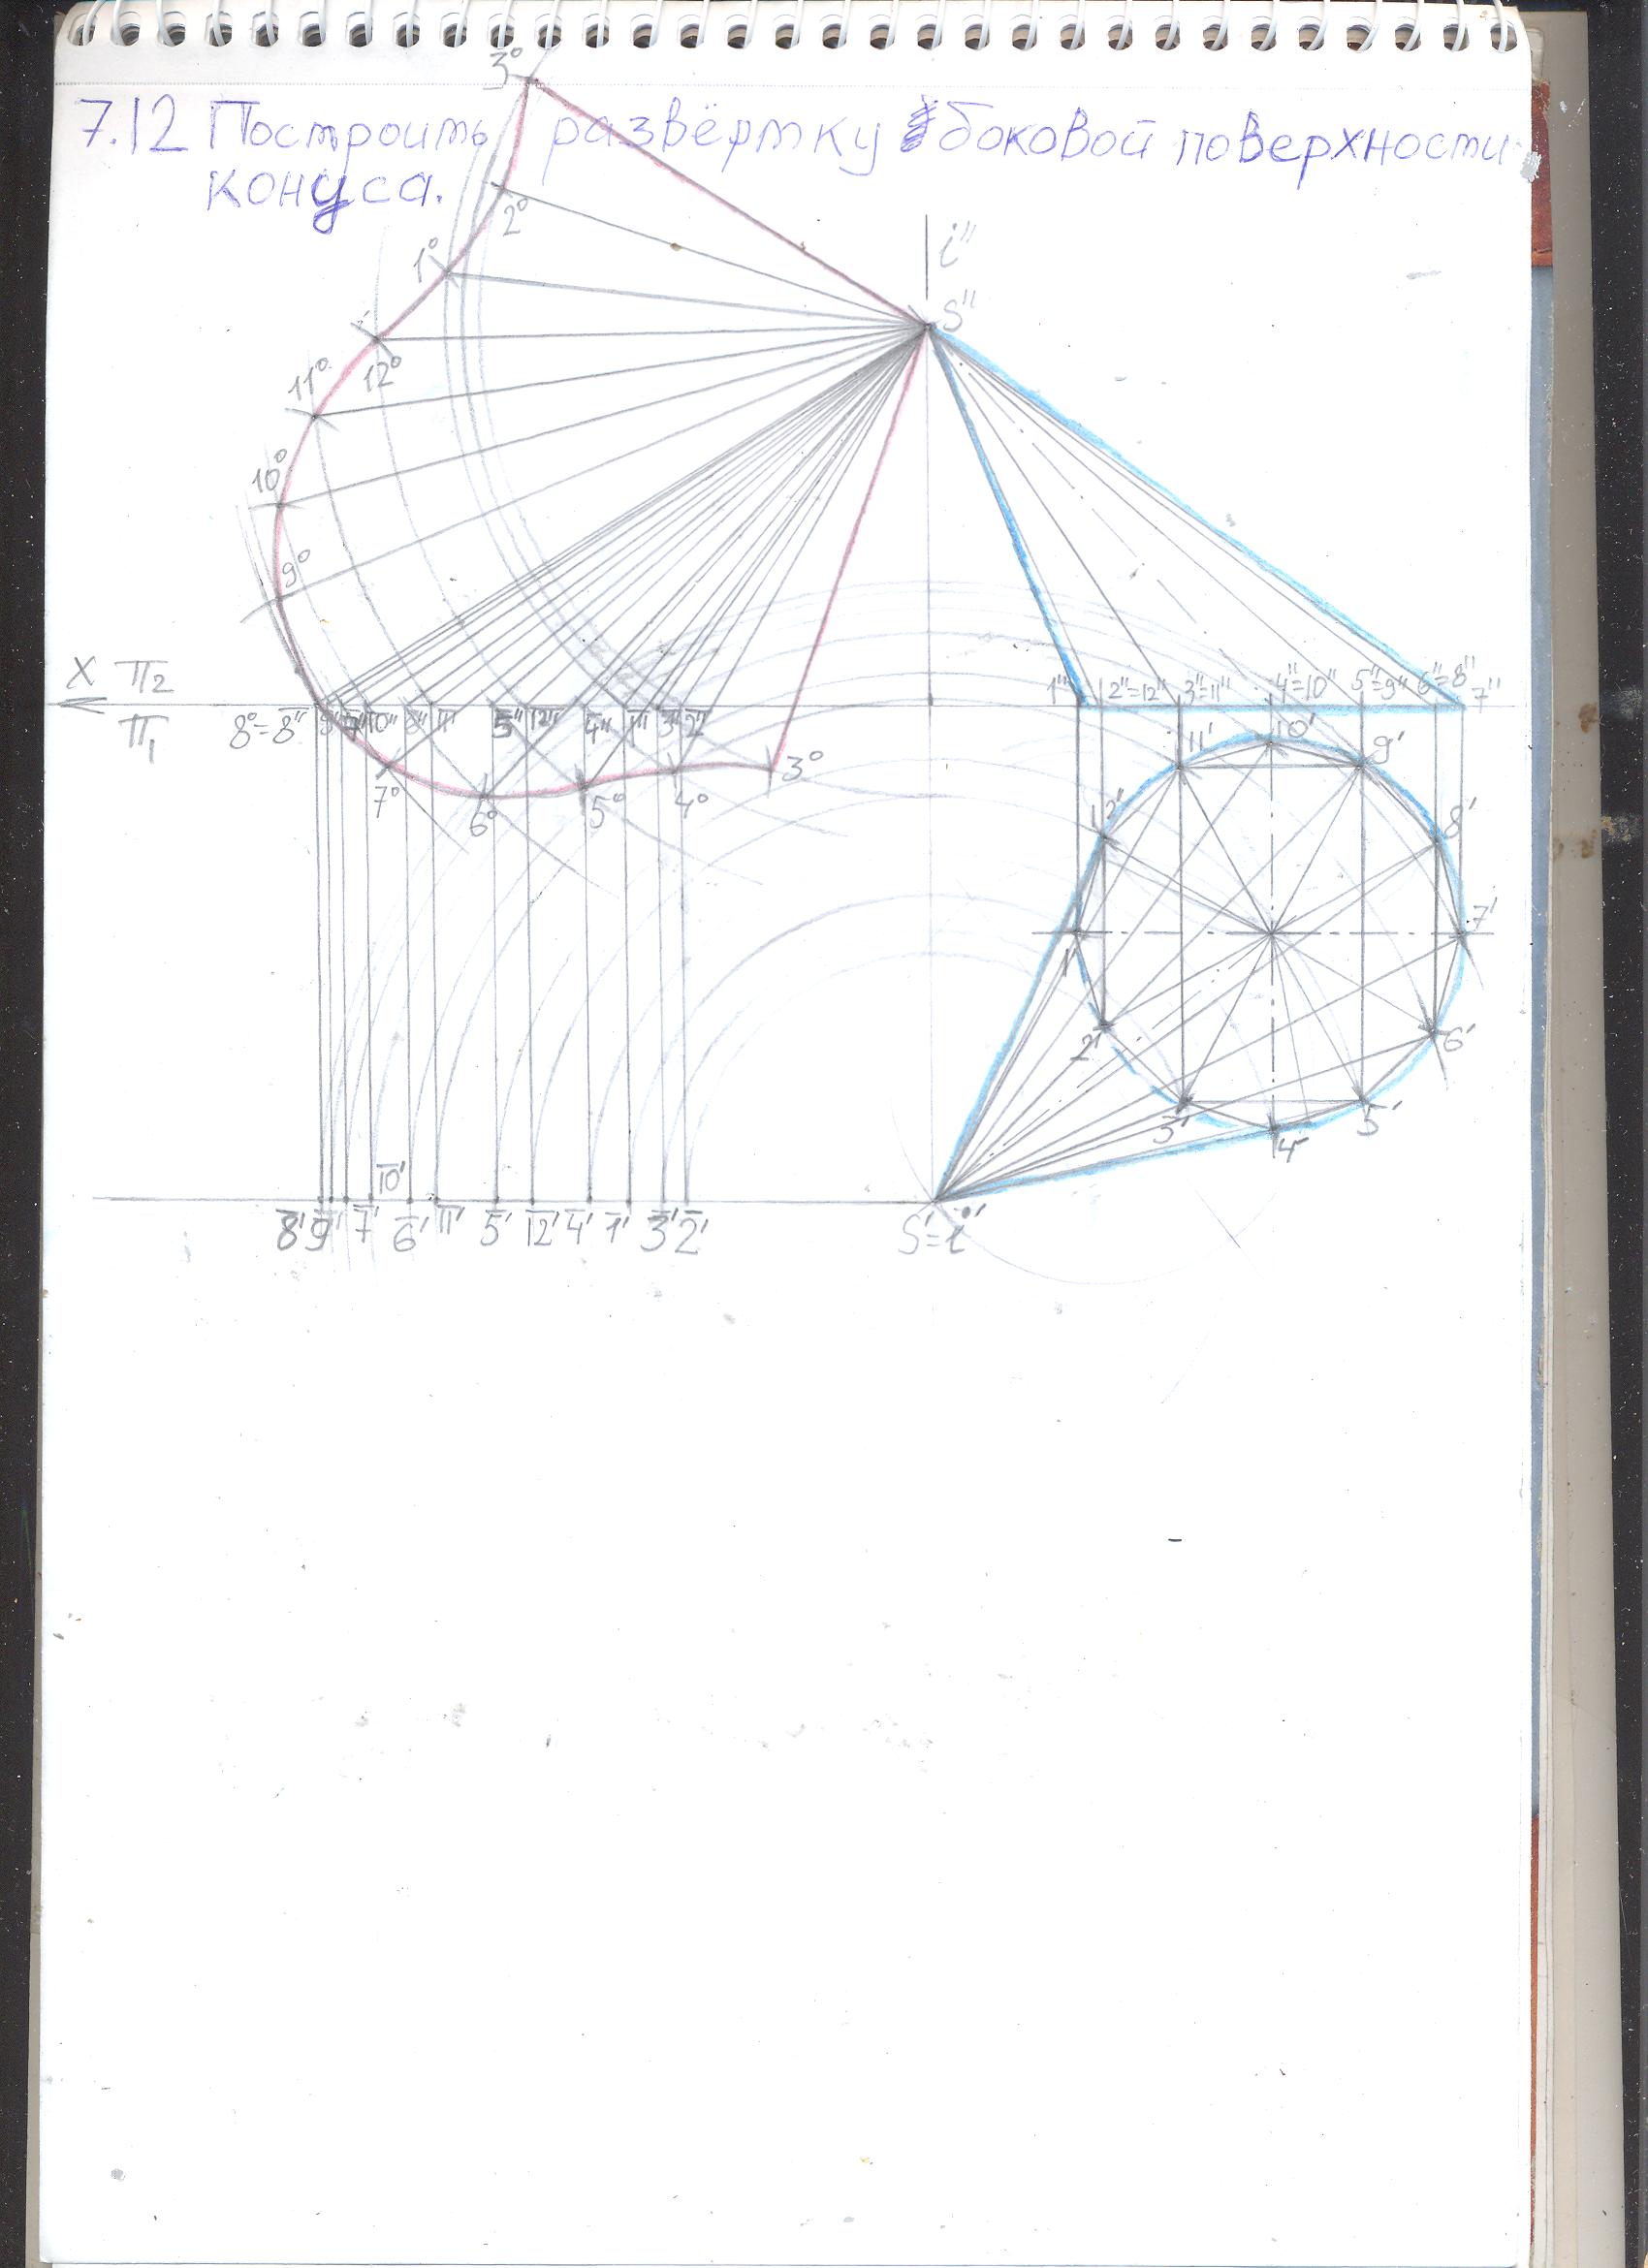 3°
7.12 Построить развёртку боковой поверхности
конуса.
2°
i"
1°
S"
12°
11°
10°
9°
X π2
π1
8°=8" 9" 7" 10" 6" 11" 5" 12" 4" 1" 3" 2"
1" 2"=12" 3"=11" 4"=10" 5"=9" 6"=8" 7"
11' 10' 9'
7° 6° 5° 4° 3°
12' 8'
1' 7'
2' 6'
3' 4' 5'
10'
8' 9' 7' 6' 11' 5' 12' 4' 1' 3' 2'
S'=i'